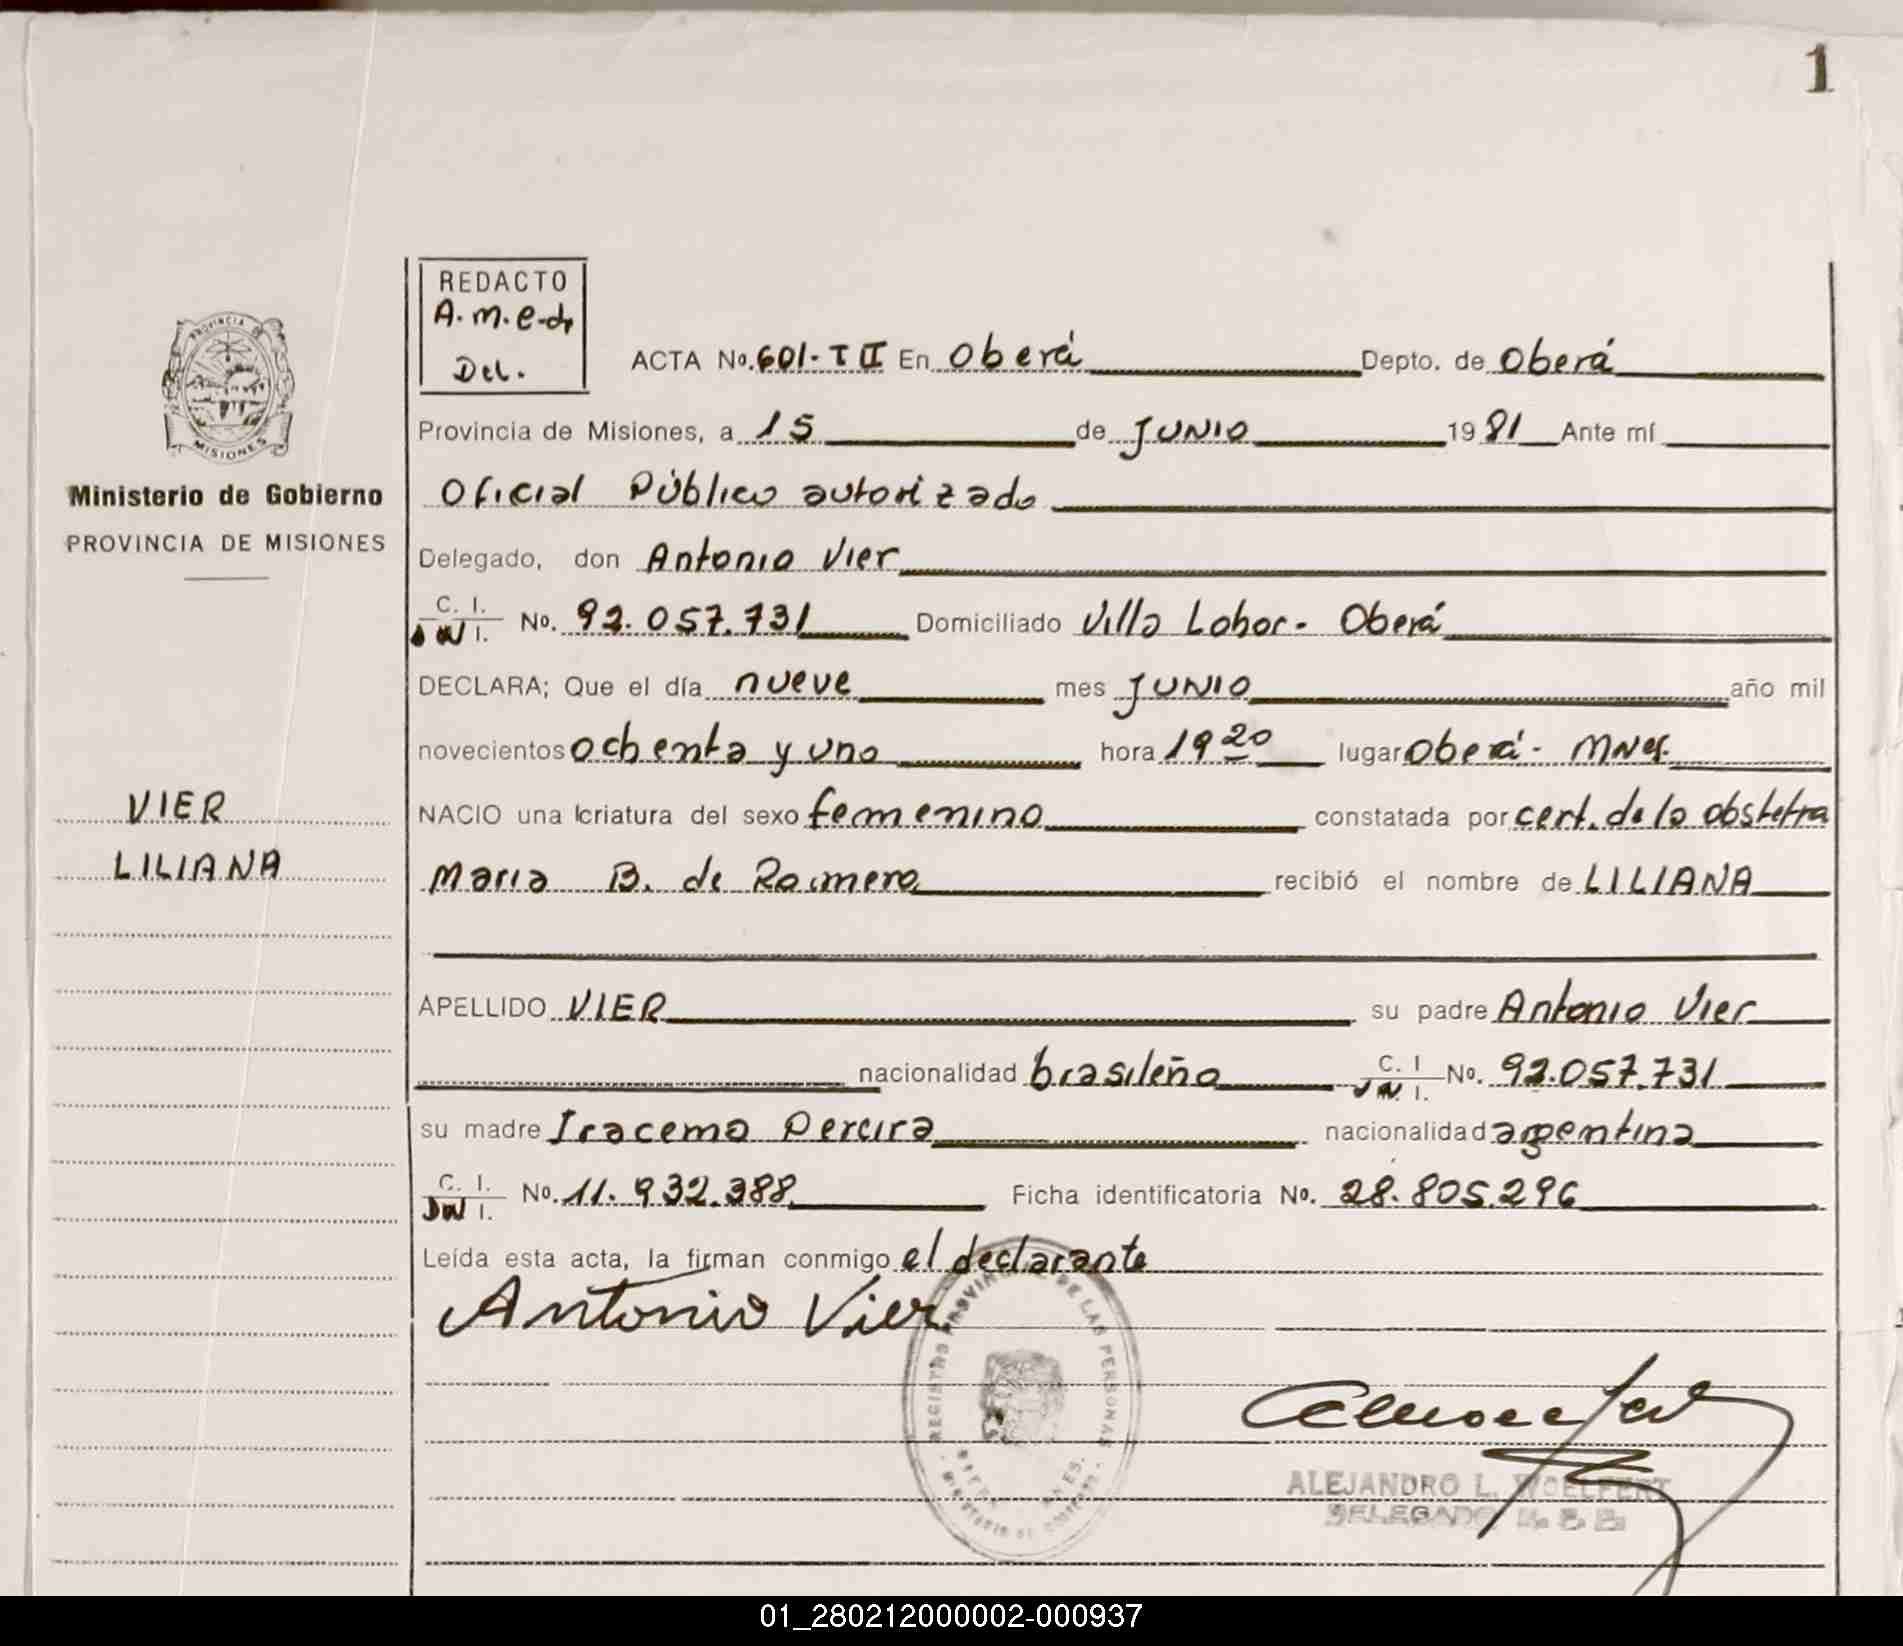 1
REDACTO
A. m. e-dr
Del.
ACTA No. 601 - T II En Oberá Depto. de Oberá
Provincia de Misiones, a 15 de JUNIO 1981 Ante mí
Oficial Público autorizado
Delegado, don Antonio Vier
C. I.
No. 92.057.731 Domiciliado Villa Lohor - Oberá
DECLARA; Que el día nueve mes JUNIO año mil
novecientos ochenta y uno hora 19 20 lugar Oberá - Mnes.
NACIO una criatura del sexo femenino constatada por cert. de la obstetra
Maria B. de Romero recibió el nombre de LILIANA
APELLIDO VIER su padre Antonio Vier
nacionalidad brasileño C. I No. 92.057.731
su madre Iracema Pereira nacionalidad argentina
C. I. No. 11.932.388 Ficha identificatoria No. 28.805.296
Leída esta acta, la firman conmigo el declarante
Antonio Vier
PROVINCIA DE
MISIONES
Ministerio de Gobierno
PROVINCIA DE MISIONES
VIER
LILIANA
REGISTRO PROVINCIAL DE LAS PERSONAS
ALEJANDRO L. WOELFERT
DELEGADO
01_280212000002-000937